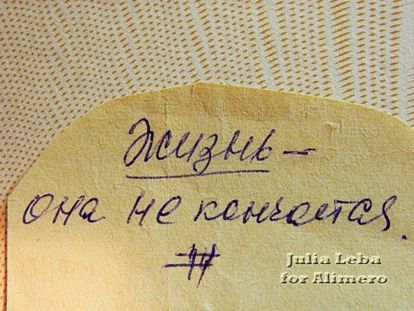 Жизнь –
она не кончается.
#
Julia Leba
for Alimero